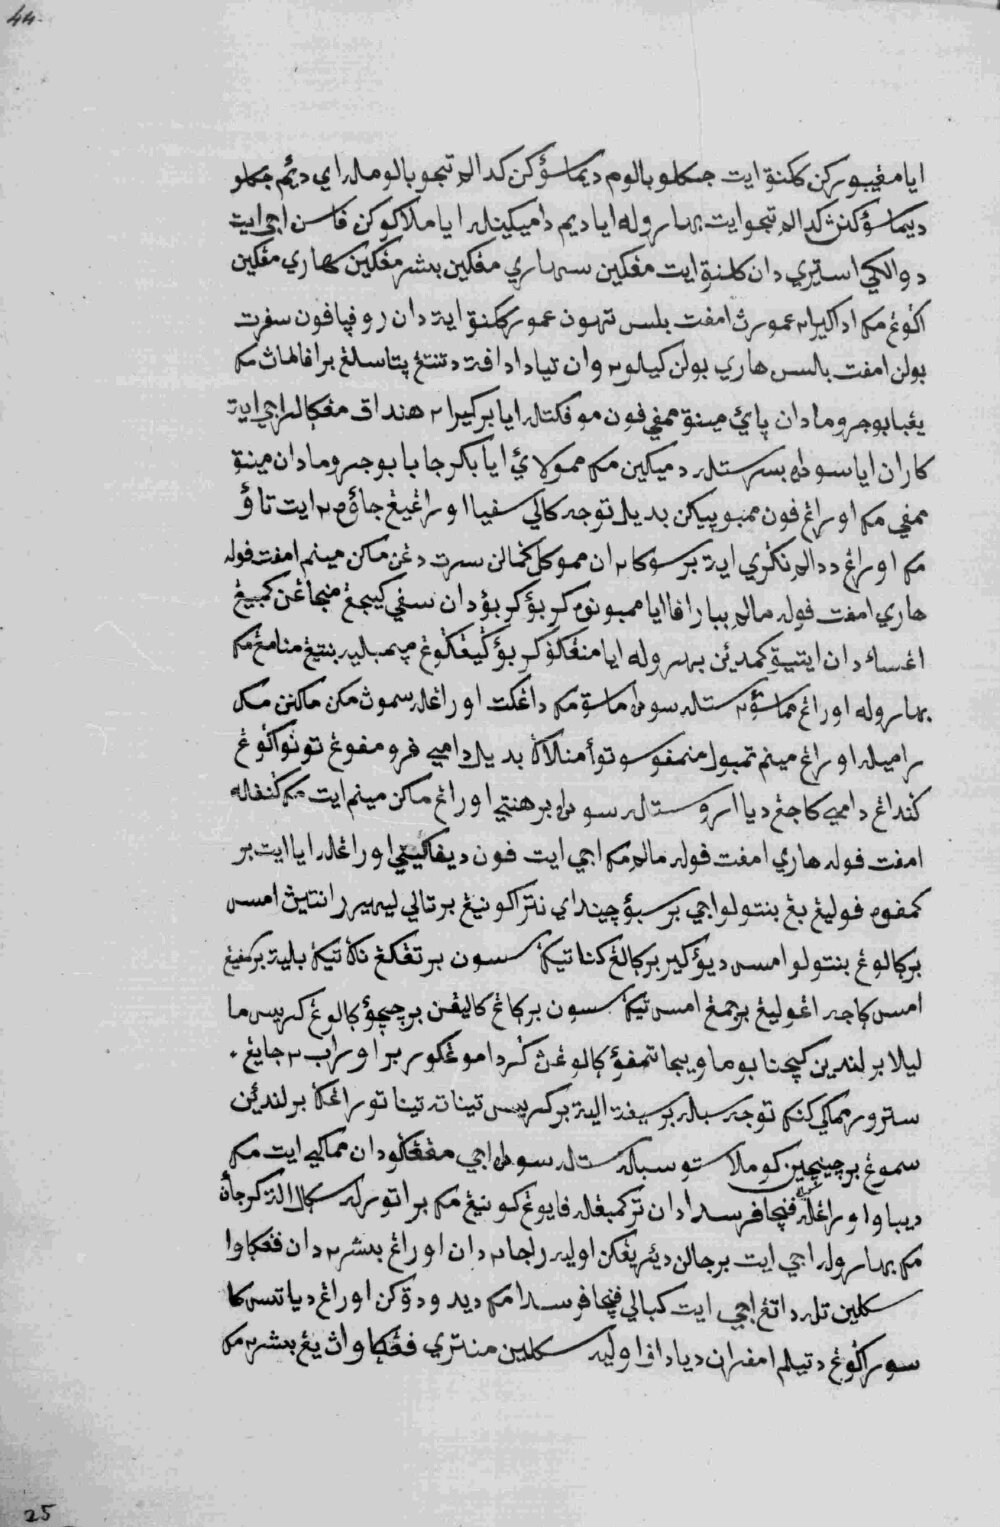 44
ايا مڠيبورکن کمنق ايت جکلو بالوم ديماسؤکن کدالم تبجو بالومله اي ديئم جکلو
ديماسؤکنڽ کدالم تبجو ايت بهاروله ايا ديم دميکينله ايا ملاکوکن فاسن اجي ايت
دوالکي استري دان کمنق ايت مڠکين سهاري مڠکين بسر مڠکين سهاري مڠکين
اکوڠ مک اد اکيرا٢ عمورڽ امفت بلس تهون عمور کمنق ايت دان روفا فون سفرت
بولن امفت بالس هاري بولن کيلو٢وان تياد ادافت دتنتڠ ڽتاسلڠ برافالماڽ مک
يڠبابوجروما دان ڽاي مينق ممڤي فون موفکتله ايا برکيرا٢ هندق مڠکاله راجي ايت
کارن ايا سوده بسرستله دميکين مک ممولاي ايا بکرجا بابوجروما دان مينق
ممفي مک اوراڠ فون ممبوڽيکن بديل توجه کالي سفيا اوراڠيڠ جاؤه٢ ايت تاؤ
مک اوراڠ ددالم نکري ايت برسوکا٢ان مموکل کڠالن سرت دڠن ماکن مينم امفت فوله
هاري امفت فوله مالم ببارافا ايا ممبونه کربؤ کربؤ دان سفي کيجڠ منجاڠن کمبيڠ
اڠسا دان ايتيق کمدين بهروله ايا منڠکڤ کربؤ کيڠکوڠ ڽمبليه بنتيڠ منامڠ مک
بهاروله اوراڠ مماسق٢ ستله سوده ماسق مک داڠکت اوراڠله سموڽ مکن ماکنن مک
راميله اوراڠ مينم تمبول منمفوسوتوأ منالاکن بديل دامي فرومفوڠ تونو اکوڠ
کنداڠ دامي کاجڠ ديا اسروستله سوده برهنتي اوراڠ ماکن مينم ايت مک کنفله
امفت فوله هاري امفت فوله مالم مک اجي ايت فون ديفاکيني اوراڠله ايا ايت بر
کمفوه فوليڠ بڠ بنتولو اجي برسبؤ چينداي نتراکونيڠ برتالي ليهير رانتيڽ امس
برکالوڠ بنتولو امس ديوکير برکالڠ کنا تيک سسون برتڠکڠ نک تيک بليت برکنيڠ
امس کاجه اڠوليڠ برجمڠ امس تيک سسون برکاڠ کاليڠن برچيچؤ کالوڠ کريس ما
ليلا برلندين کيچنا بوما ويجا تمفؤ کالوڠڽ کرد اموڠکور بر اوراب٢ جايڠ .
سترور مماکي کنک توجه سبله برسيفت اليت برکريس تيناته تيناتوراڠک برلندين
سموڠ برچينچين کوملا ستو سبله ستله سوده اجي مڠڠکو دان مماکي ايت مک
ديباوا اوراڠله فنچافرسدا دان ترکمبڠله فايوڠ کونيڠ مک براتورله سکال الت کرجأن
مک بهاروله اجي ايت برجالن ديئريڠکن اوليه راجا٢ دان اوراڠ بسر٢ دان فڠکاوا
سکلين تله داتڠ اجي ايت کمبالي فنچافرسدا مک ديدودؤکن اوراڠ دياتس کا
سور اکوڠ دتيلم امفران دياداف اوليه سکلين منتري فڠکاواڽ يڠ بسر٢ مک
25